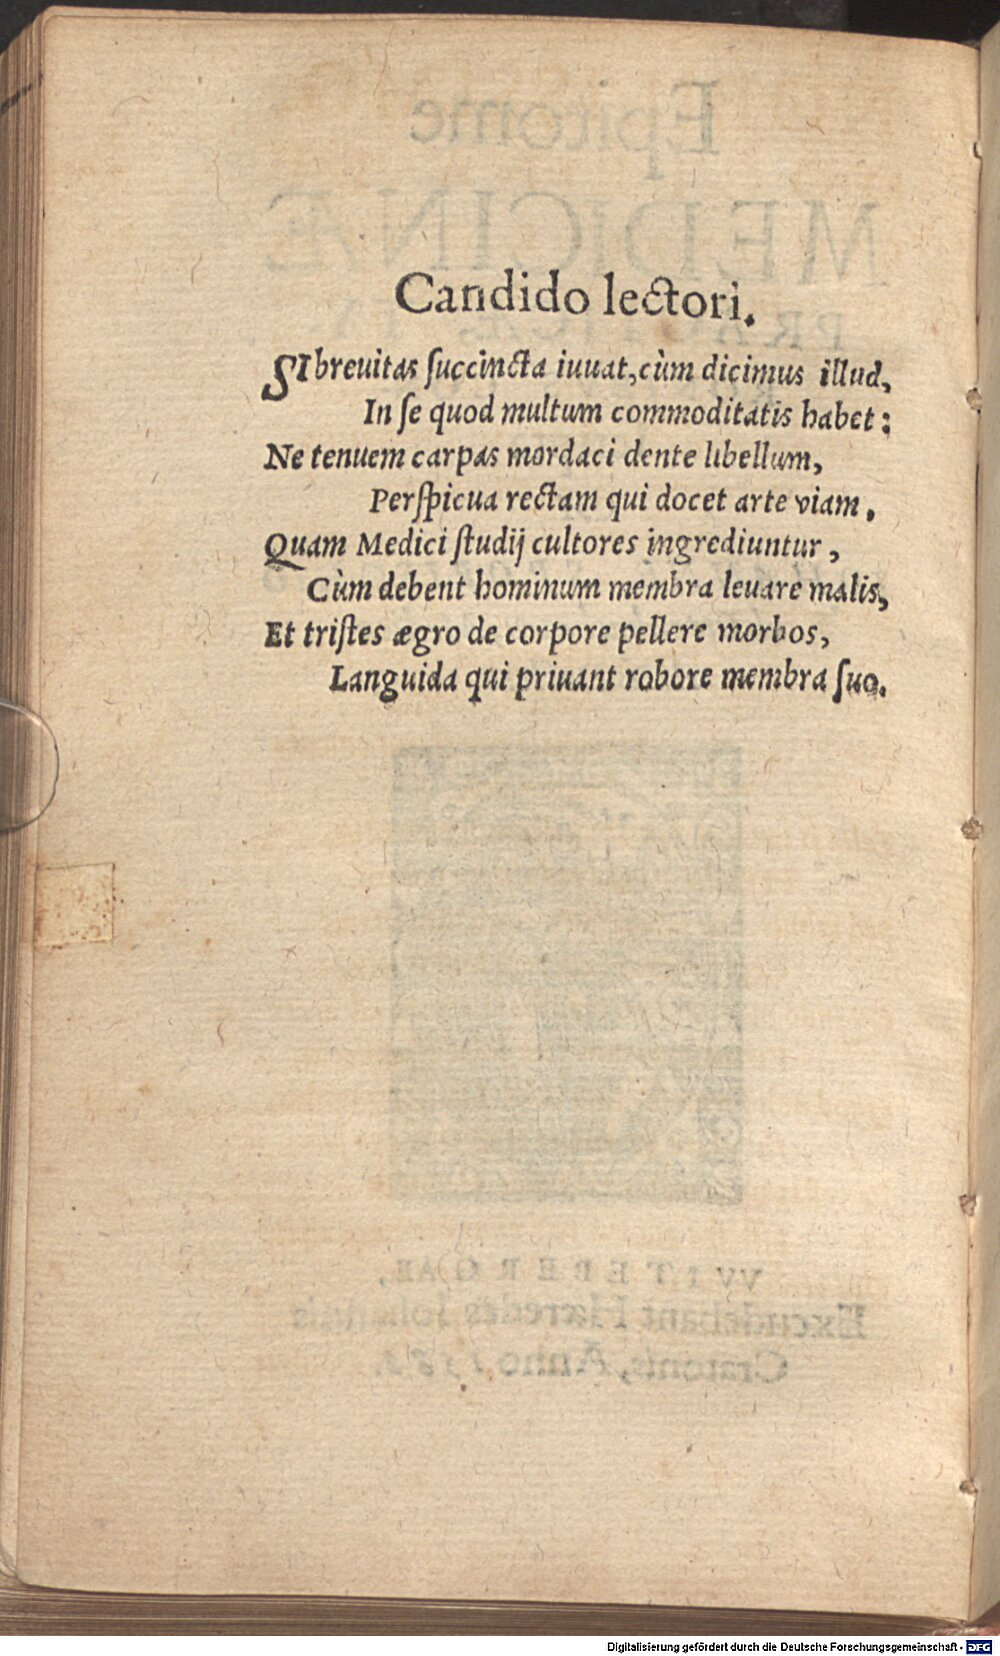 Candido lectori.
SI breuitas succincta iuuat, cùm dicimus illud,
In se quod multum commoditatis habet:
Ne tenuem carpas mordaci dente libellum,
Perspicua rectam qui docet arte viam.
Quam Medici studij cultores ingrediuntur,
Cùm debent hominum membra leuare malis,
Et tristes ægro de corpore pellere morbos,
Languida qui priuant robore membra suo.
Digitalisierung gefördert durch die Deutsche Forschungsgemeinschaft - DFG